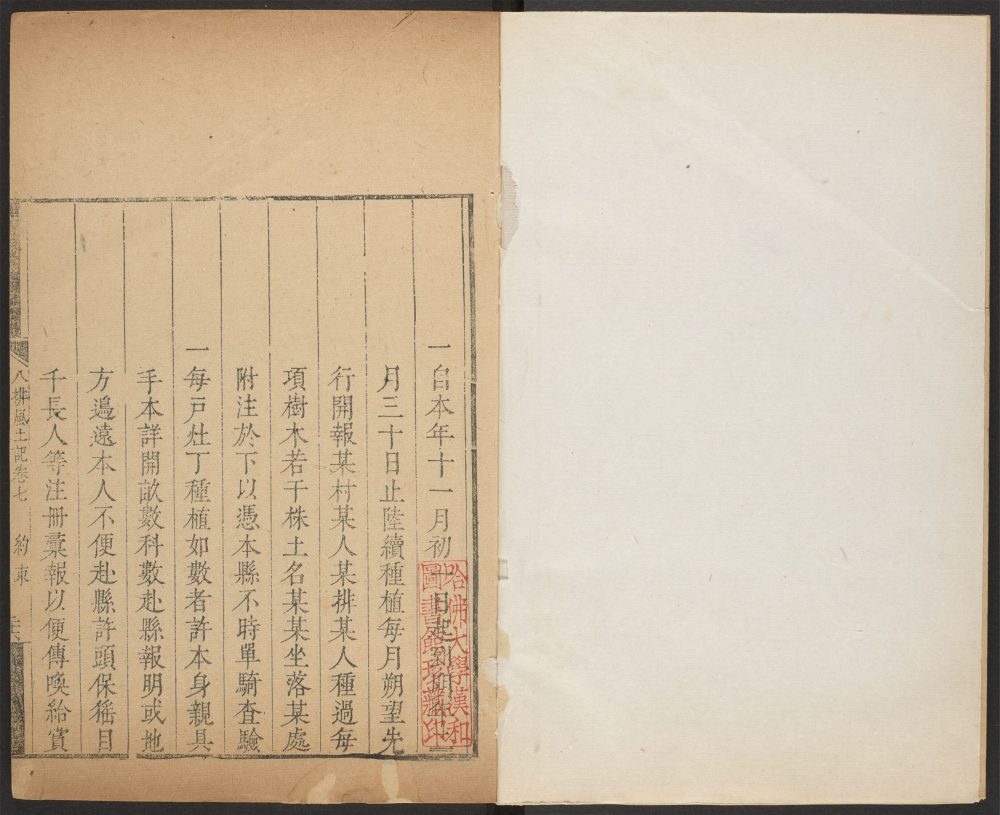 一自本年十一月初一日起到
月三十日止陸續種植每月朔望先
行開報某村某人某排某人種過每
項樹木若干株土名某某坐落某處
附注於下以憑本縣不時單騎查驗
一每戶灶丁種植如數者許本身親具
手本詳開畝數科數赴縣報明或地
方邉遠本人不便赴縣許頭保猺目
千長人等注冊稟報以便傳喚給賞
八排風土記卷七 約束
哈佛大學漢和
圖書館珍藏印